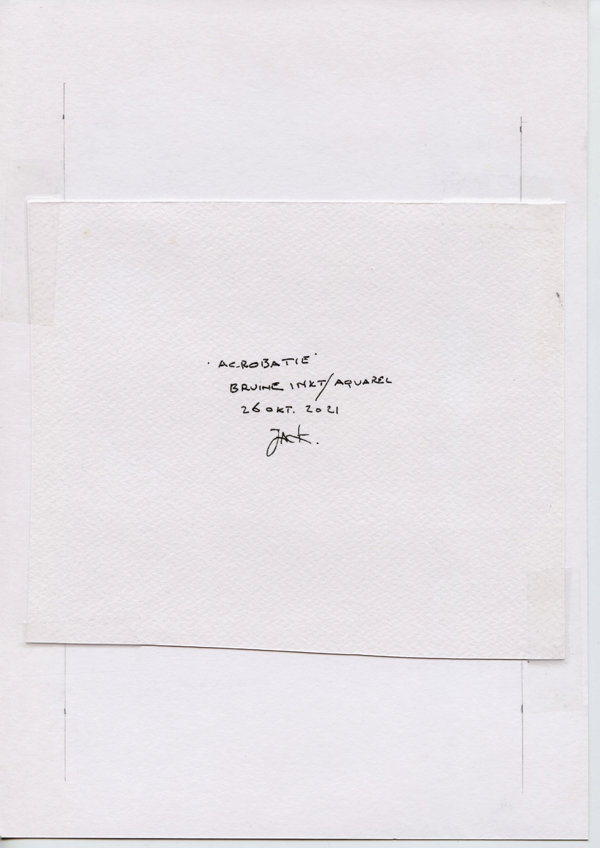 'ACROBATIE'
BRUINE INKT/AQUAREL
26 OKT. 2021
JACK.